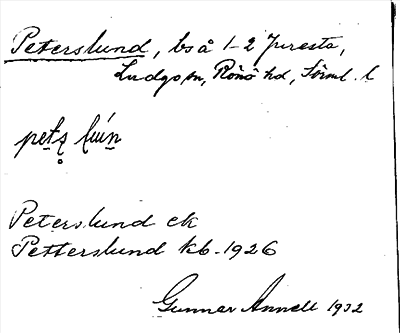 Peterslund, bs å 1-2 Juresta,
Ludgo sn, Rönö hd, Sörml. l
Peterslund ek
Petterslund kb. 1926
Gunnar Annell 1932